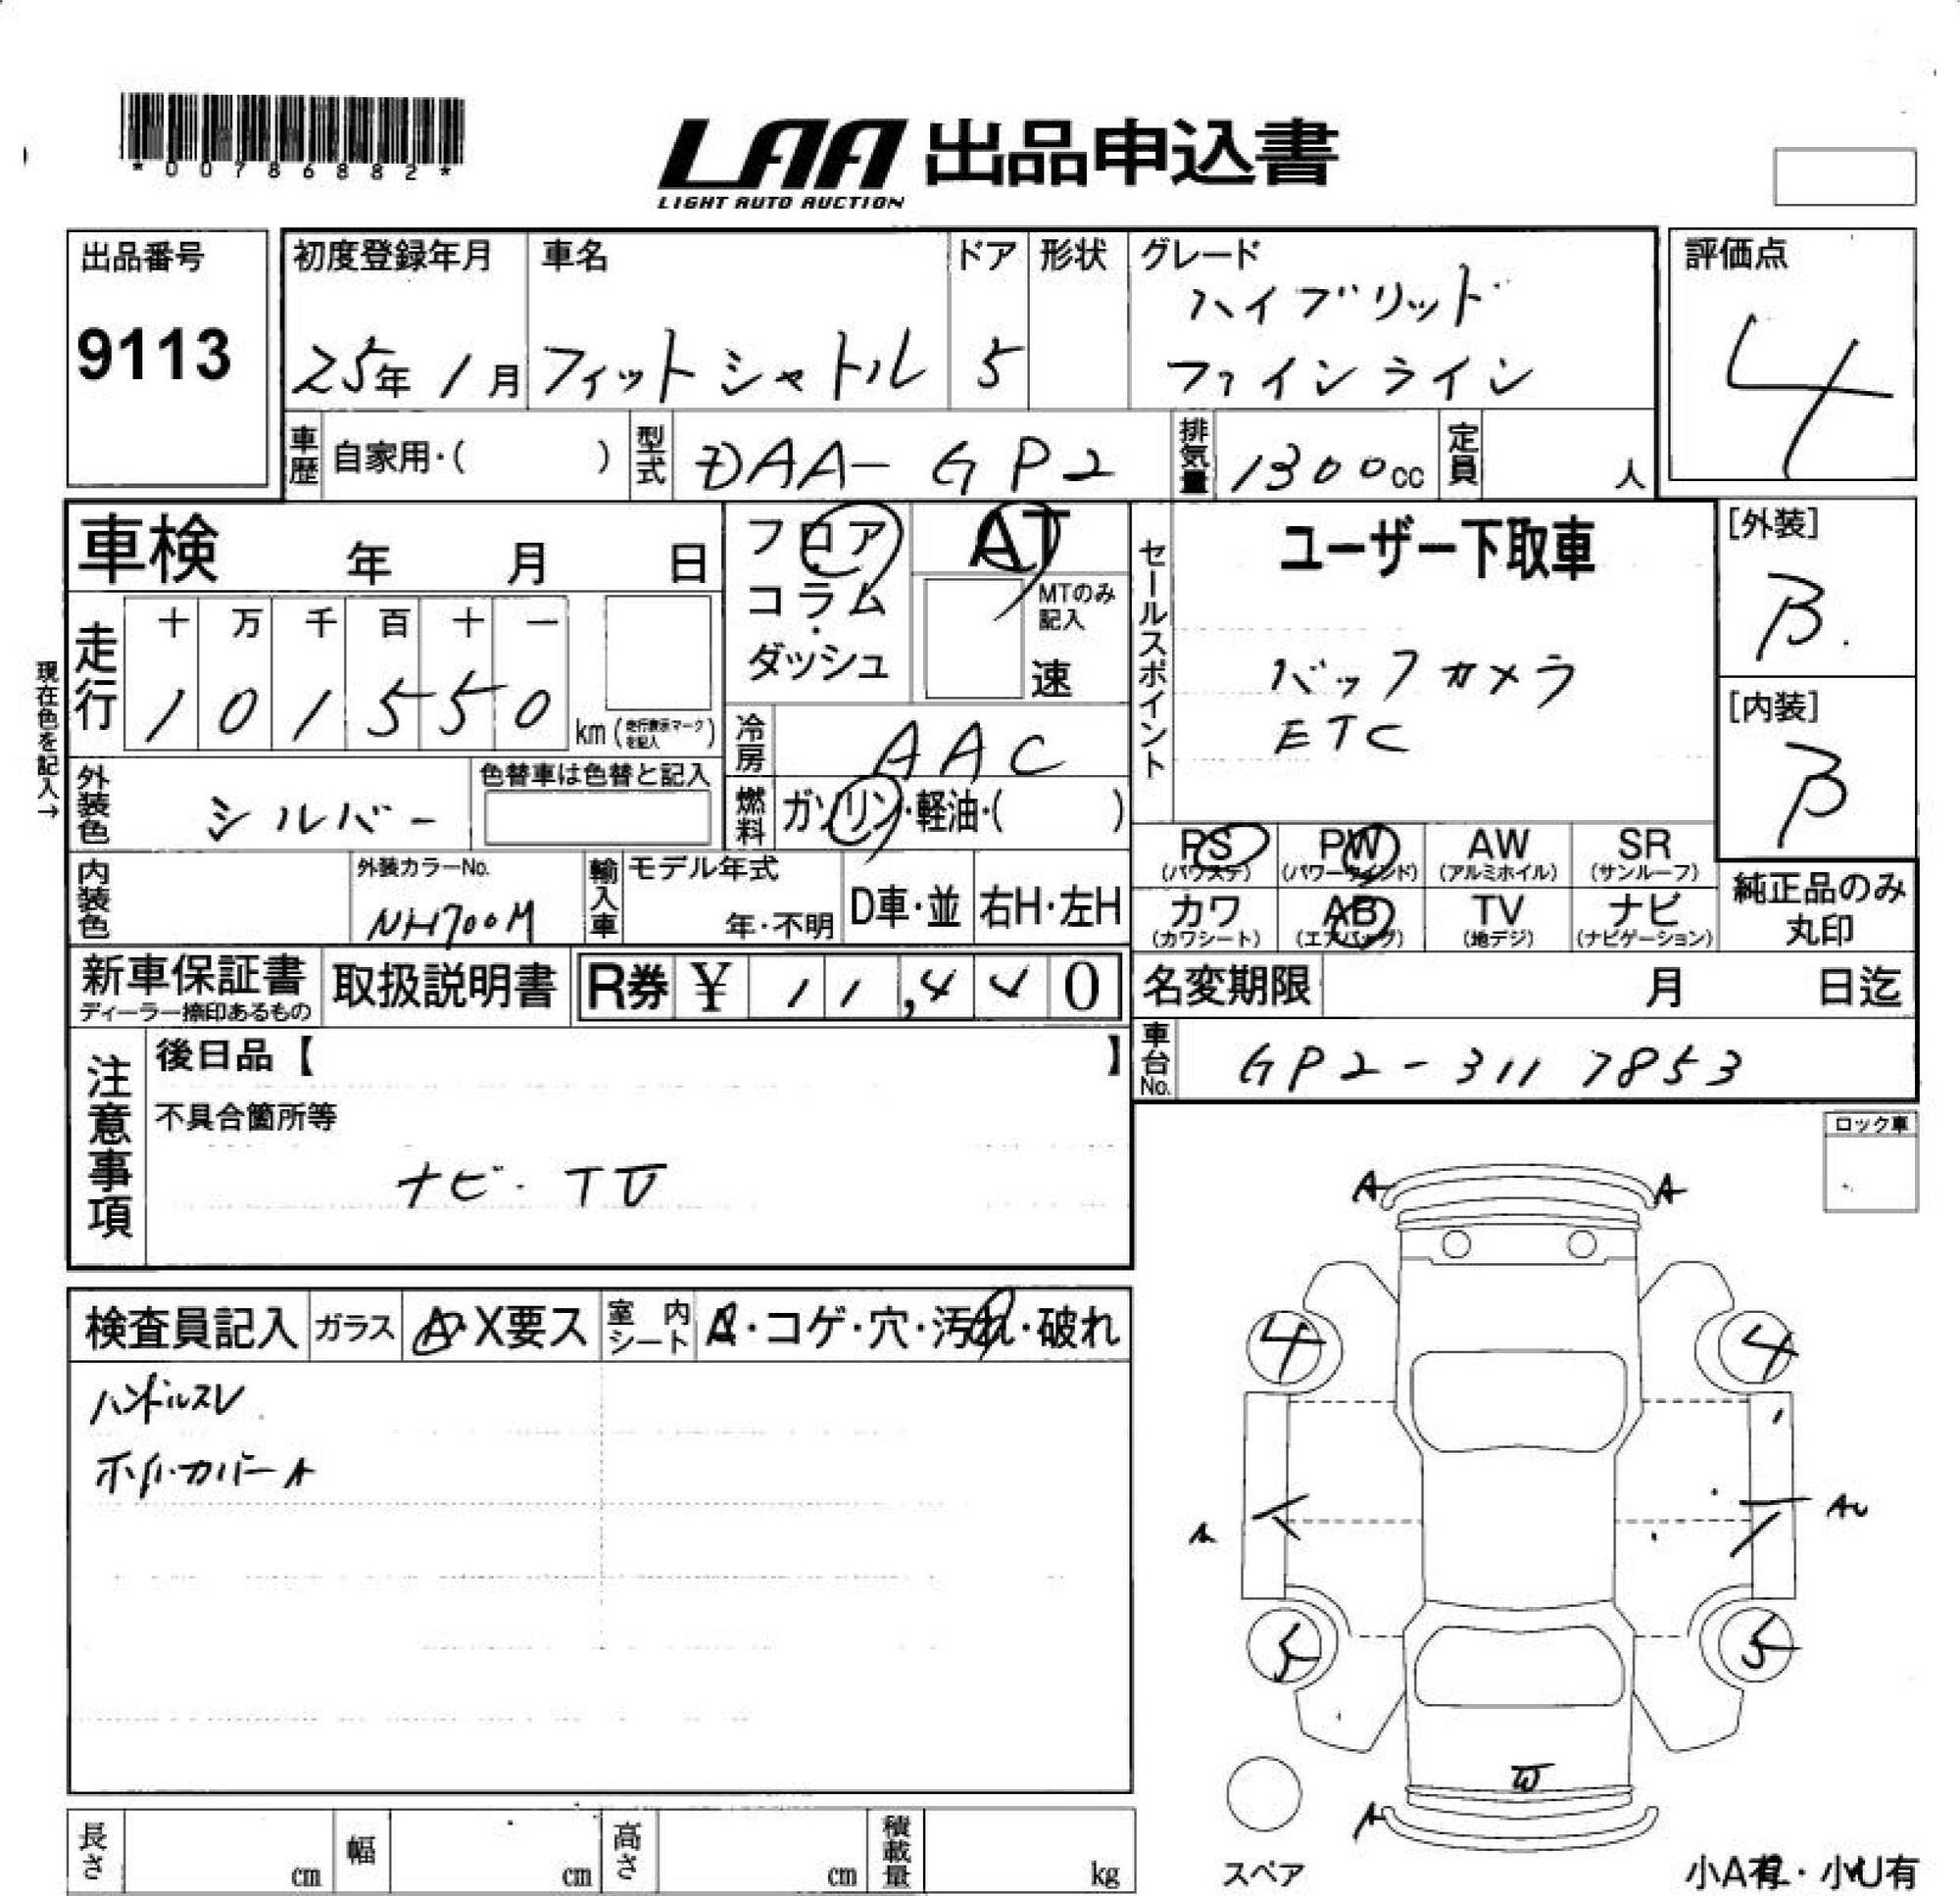 *00786882*
LAA 出品申込書
LIGHT AUTO AUCTION
出品番号
9113
初度登録年月
25年 1月
車名
フィットシャトル
ドア
5
形状
グレード
ハイブリッド
ファインライン
評価点
4
車歴 自家用・( )
型式 DAA-GP2
排気量 1300cc
定員 人
車検 年 月 日
フロア
コラム
・
ダッシュ
AT
MTのみ
記入
速
セールスポイント
ユーザー下取車
バックカメラ
ETC
[外装]
B
[内装]
B
現在色を記入→
走行
十 万 千 百 十 一
1 0 1 5 5 0
km (走行表示マークを記入)
冷房 AAC
外装色 シルバー
色替車は色替と記入
燃料 ガソリン・軽油・( )
内装色
外装カラーNo.
NH700M
輸入車
モデル年式
年・不明
D車・並
右H・左H
PS
(パワステ)
PW
(パワーウインド)
AW
(アルミホイル)
SR
(サンルーフ)
カワ
(カワシート)
AB
(エアバッグ)
TV
(地デジ)
ナビ
(ナビゲーション)
純正品のみ
丸印
新車保証書
ディーラー捺印あるもの
取扱説明書
R券 ¥ 11,440
名変期限 月 日迄
車台No. GP2-3117853
注意事項
後日品【 】
不具合箇所等
ナビ・TV
ロック車
検査員記入
ガラス A・X要ス
室内シート A・コゲ・穴・汚れ・破れ
ハンドルスレ
ホイルカバーA
A A
4 4
A AU
5 5
W
A
スペア
小A有・小U有
長さ cm
幅 cm
高さ cm
積載量 kg